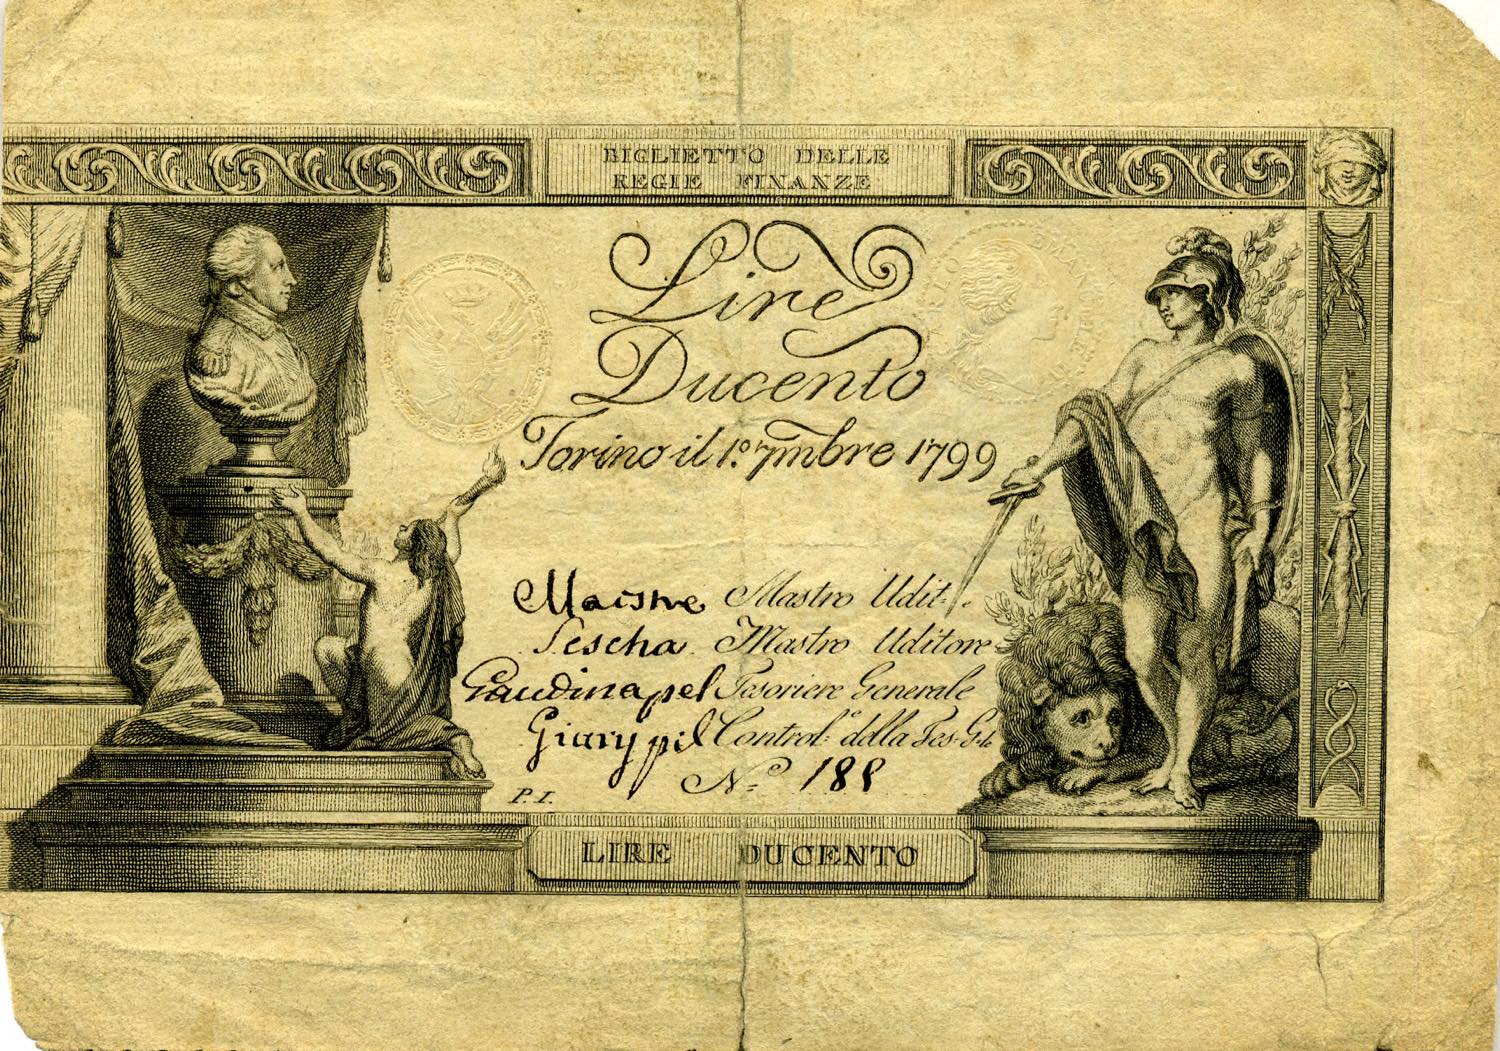 BIGLIETTO DELLE
REGIE FINANZE
Lire
Ducento
Torino il 1º 7mbre 1799
Maistre Mastro Udit.e
Pescha Mastro Uditore
Gaudina pel Tesoriere Generale
Giary pel Control.e della Tes. G.le
Nº 188
P. I.
LIRE DUCENTO